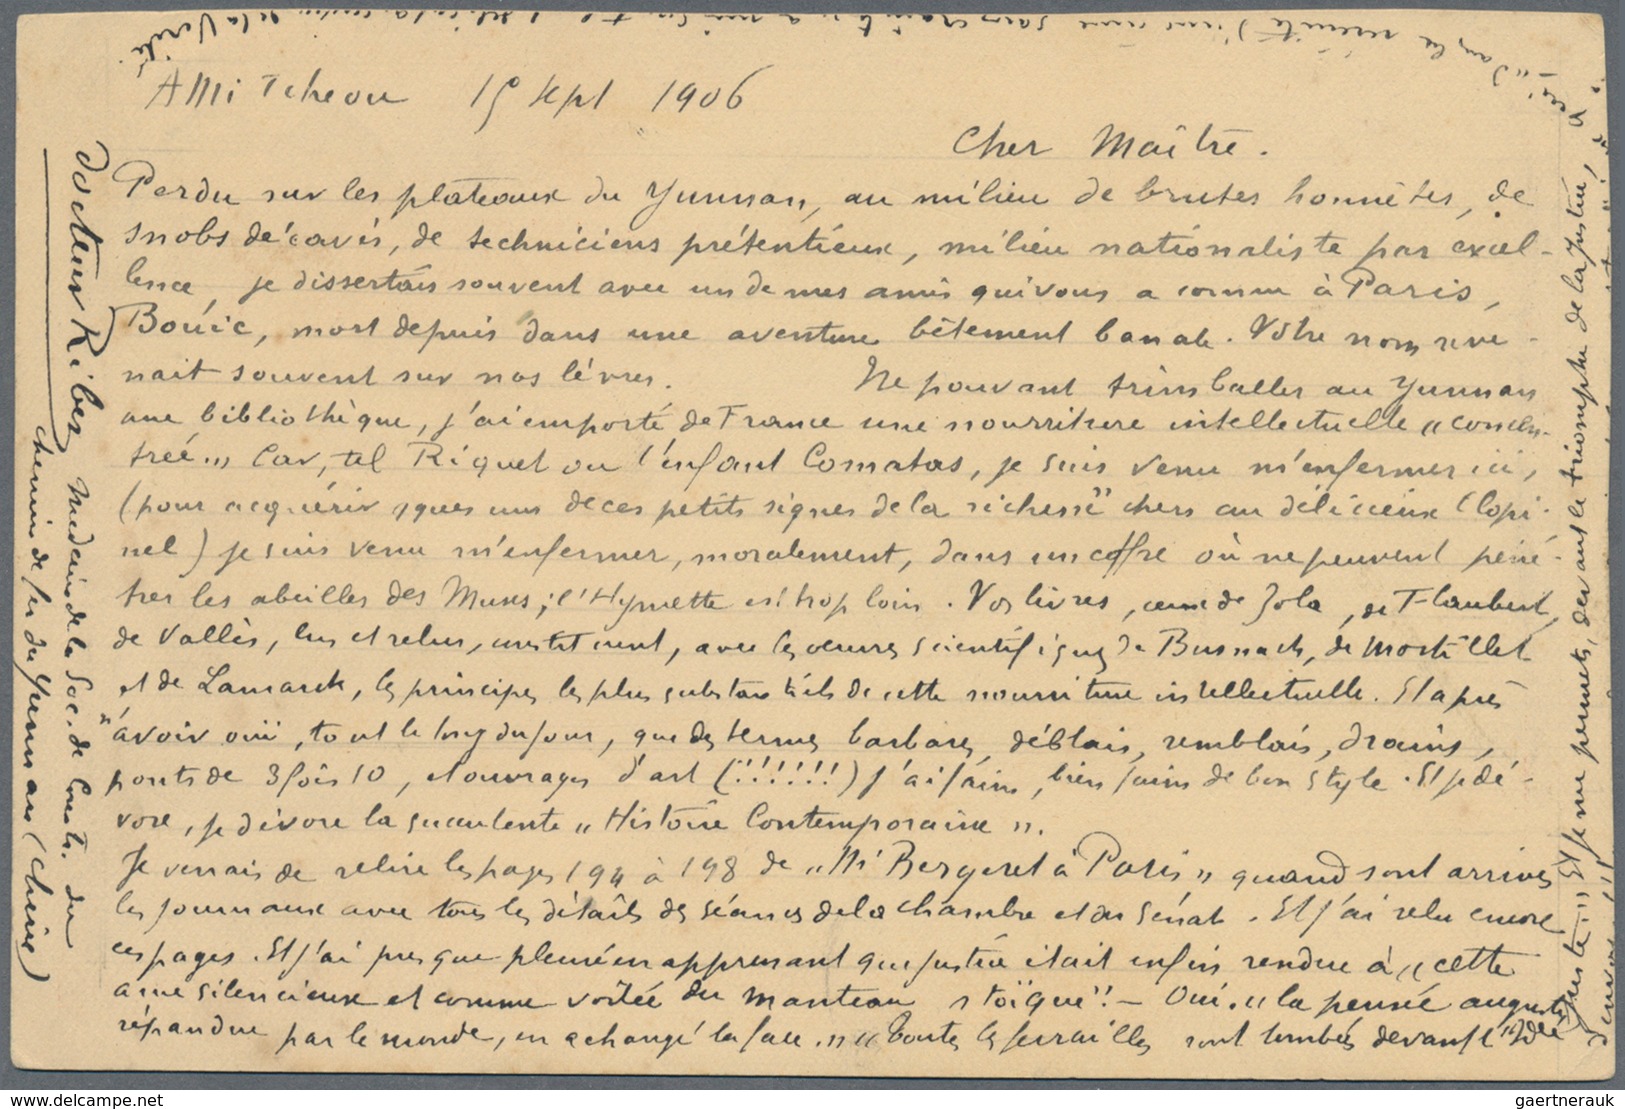 AMi Tcheou 15 sept 1906
Cher Maître.
Perdu sur les plateaux du Yunnan, au milieu de brutes honnêtes, de
snobs décavés, de techniciens prétentieux, milieu nationaliste par excel-
lence, je dissertais souvent avec un de mes amis qui vous a connu à Paris,
Bouïc, mort depuis dans une aventure bêtement banale. Votre nom reve-
nait souvent sur nos lèvres. Ne pouvant trimballer au Yunnan
une bibliothèque, j'ai emporté de France une nourriture intellectuelle "concen-
trée". Car, tel Riquet ou l'enfant Comatas, je suis venu m'enfermer ici,
(pour acquérir qques uns de ces petits signes de la richesse" chers au délicieux Clopi-
nel) je suis venu m'enfermer, moralement, dans un coffre où ne peuvent péné-
trer les abeilles des Muses; l'Hymette est trop loin. Vos livres, ceux de Zola, de Flaubert,
de Vallès, lus et relus, constituent, avec les œuvres scientifiques de de Mortillet
et de Lamarck, les principes les plus substantiels de cette nourriture intellectuelle. Et après
avoir ouï, tout le long du jour, que des termes barbares, déblais, remblais, drains,
ponts de 3 fois 10, et ouvrages d'art (!!!!!!) j'ai faim, bien faim de bon style. Et je dé-
vore, je dévore la succulente "Histoire Contemporaine".
Je venais de relire les pages 194 à 198 de "Mr Bergeret à Paris" quand sont arrivés
les journaux avec tous les détails des séances de la chambre et du Sénat. Et j'ai relu encore
ces pages. Et j'ai presque pleuré en apprenant que justice était enfin rendue à "cette
ame silencieuse et comme voilée du manteau stoïque"! — Oui, "la pensée auguste
répandue par le monde, en a changé la face." "Toutes les ferrailles sont tombées devant l'Idée
juste." Et je me permets, devant le triomphe de la Justice,
"dans la sérénité d'une ame sans crainte
de la Vérité
docteur Ribes
médecin de la Soc. de Constr. du
chemin de fer du Yunnan (Chine)
gaertnerauk / gaertnerauk.com